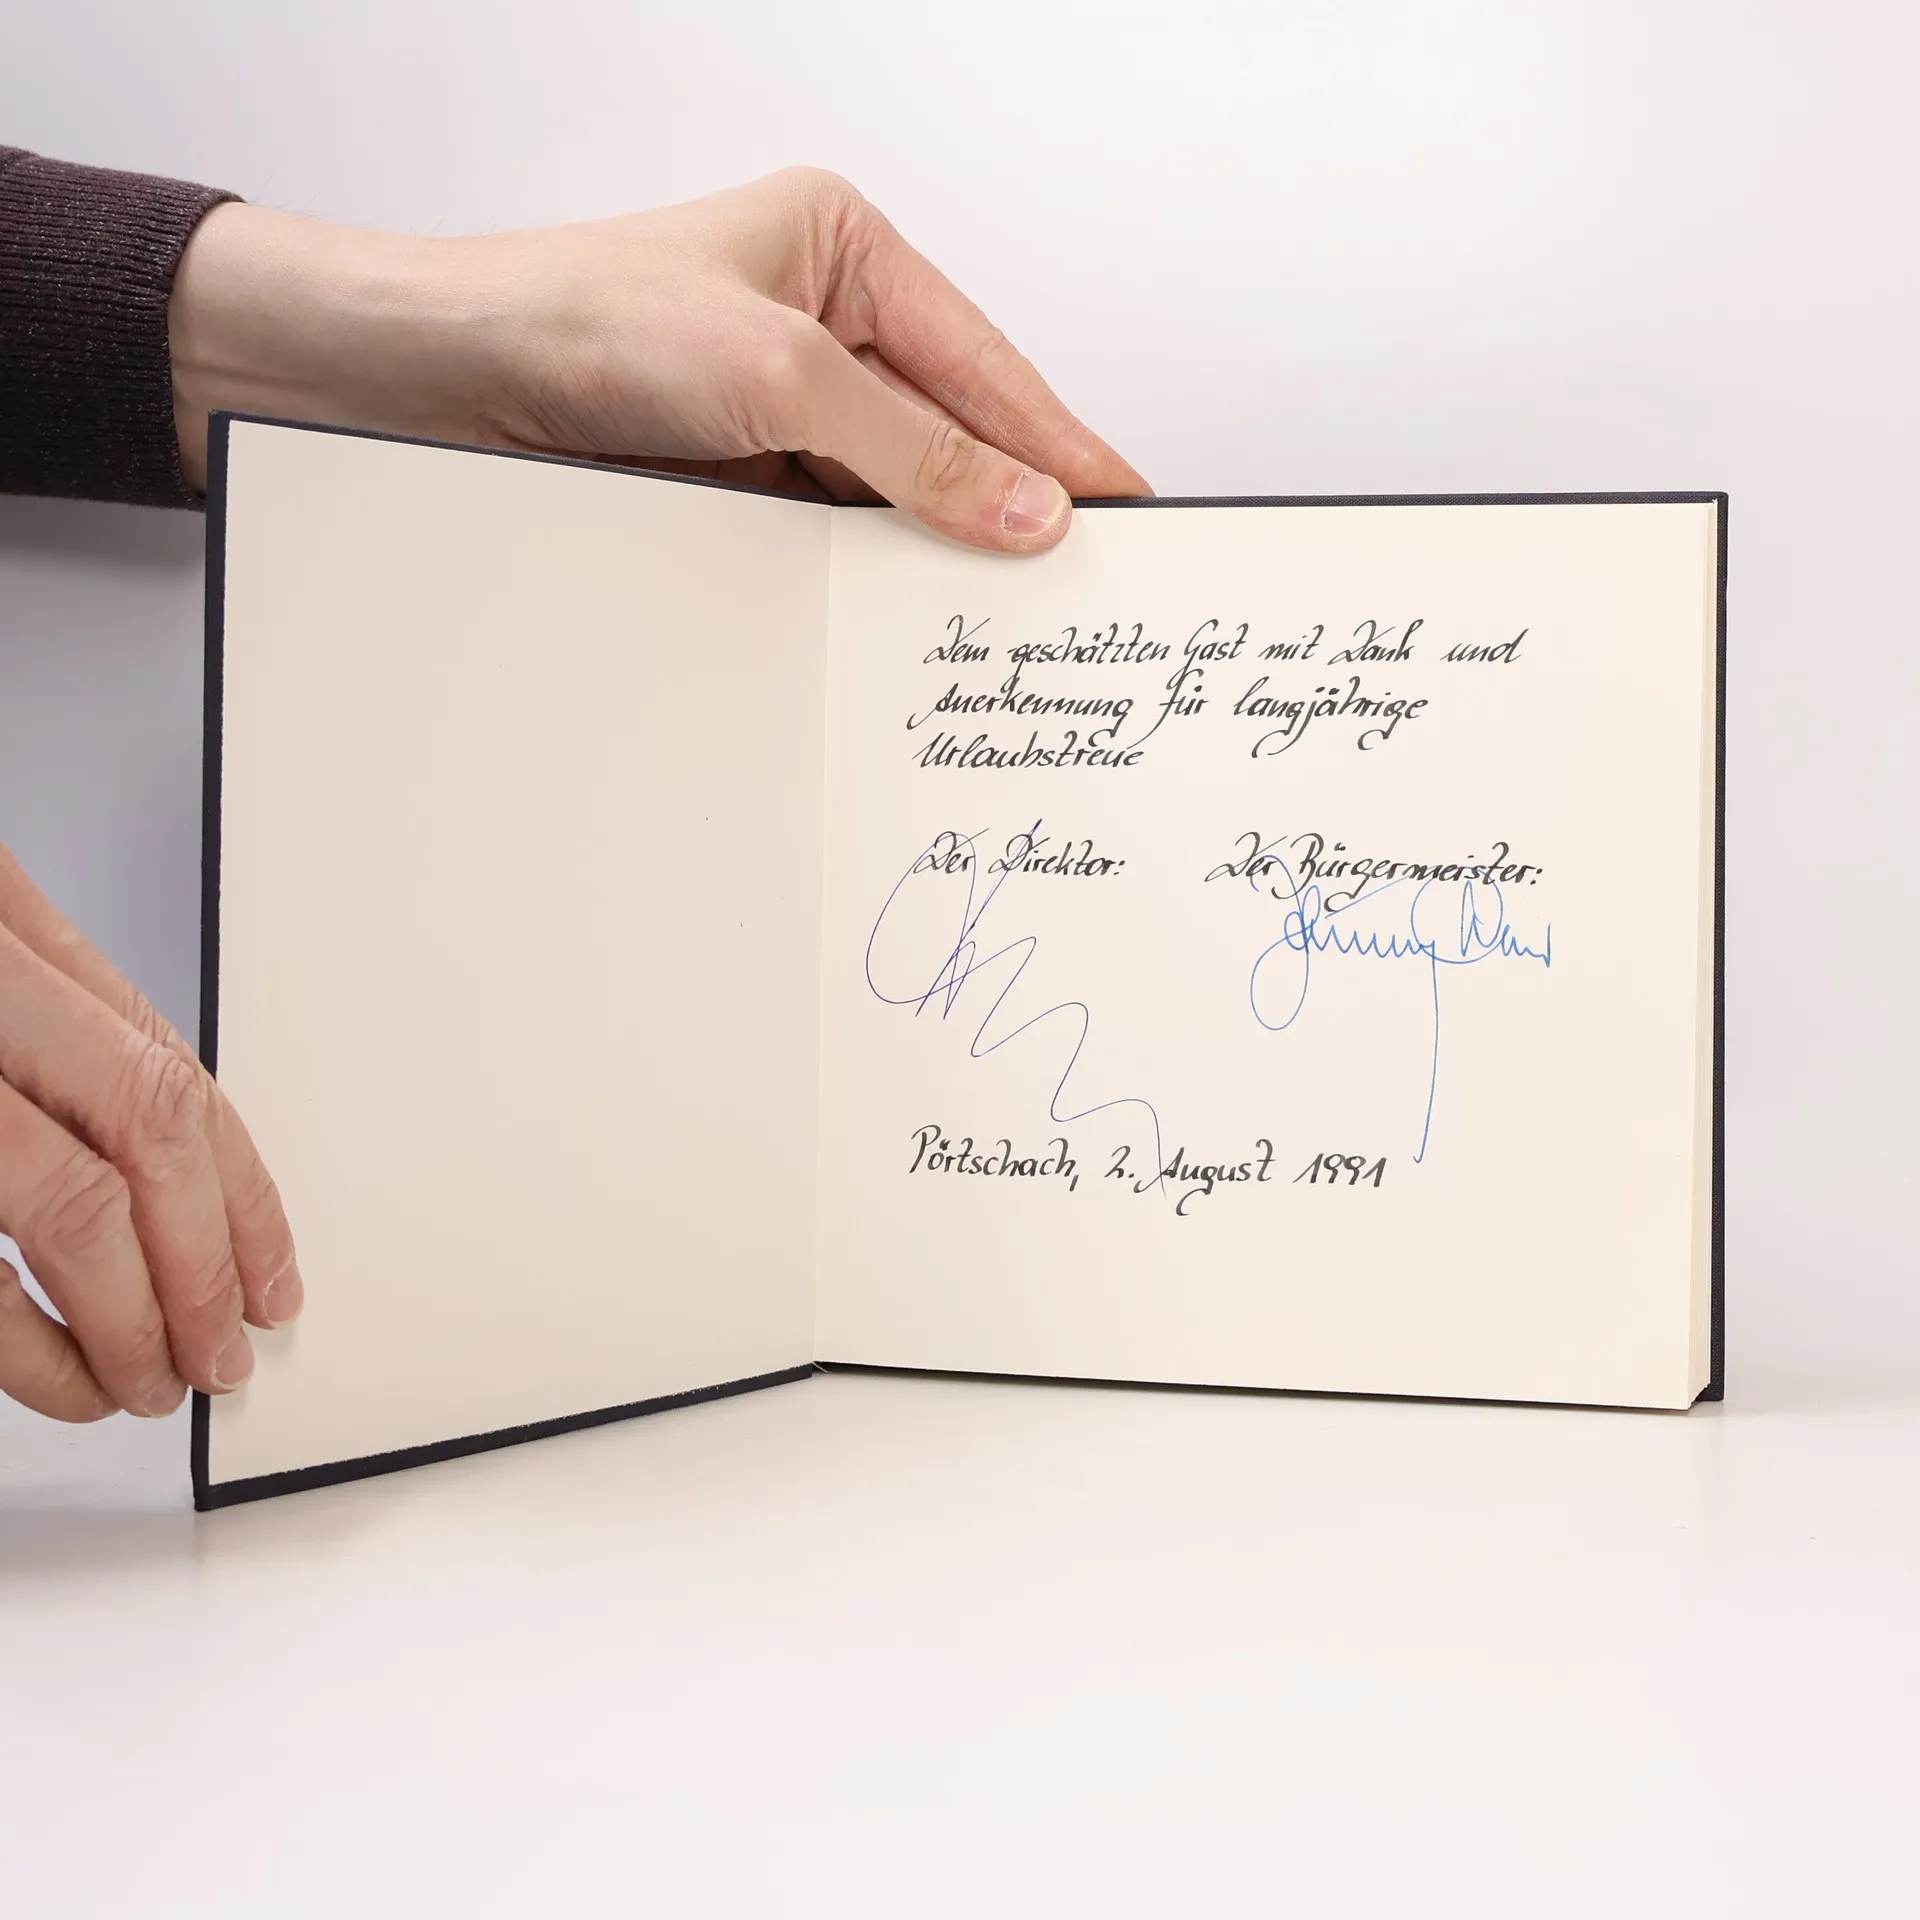 Dem geschätzten Gast mit Dank und
Anerkennung für langjährige
Urlaubstreue
Der Direktor: Der Bürgermeister:
Pörtschach, 2. August 1991